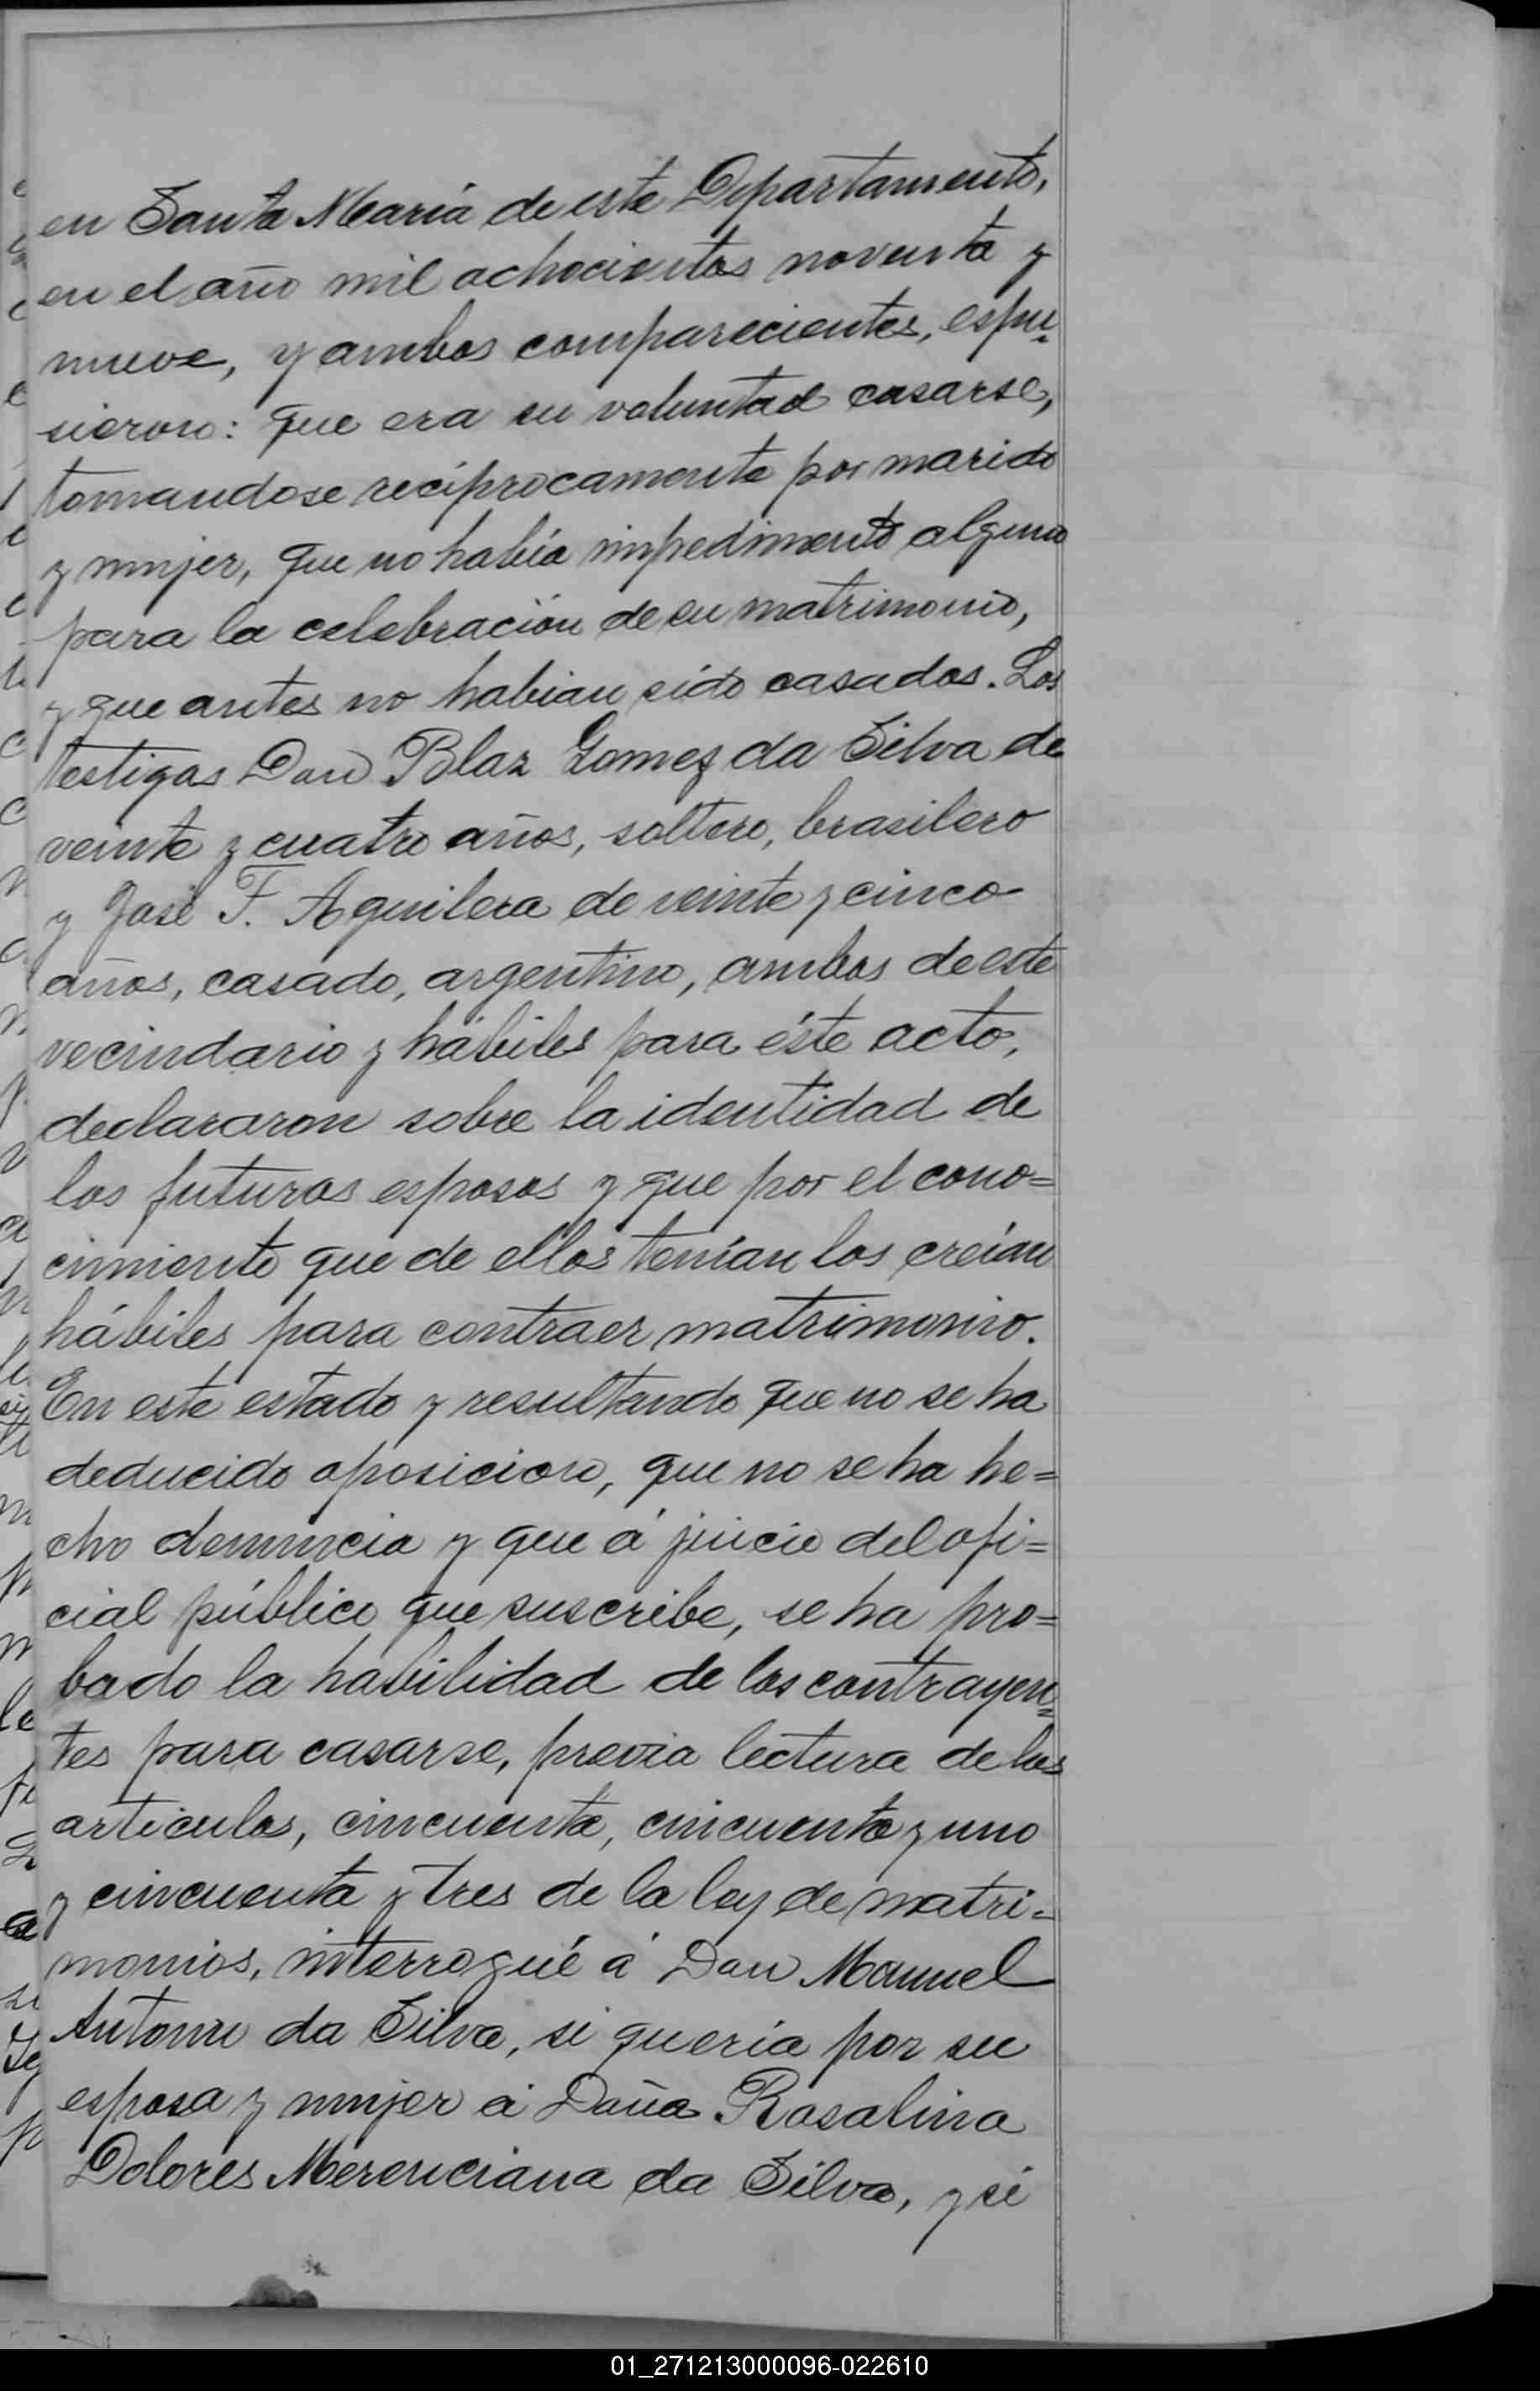 en Santa María de este Departamento,
en el año mil ochocientos noventa y
nueve, y ambos comparecientes, espu-
sieron: que era su voluntad casarse,
tomandose recíprocamente por marido
y mujer, que no había impedimento alguno
para la celebración de su matrimonio,
y que antes no habian sido casados. Los
testigos Don Blaz Gomez da Silva de
veinte y cuatro años, soltero, brasilero
y José F. Aguilera de veinte y cinco
años, casado, argentino, ambos de este
vecindario y hábiles para éste acto,
declararon sobre la identidad de
los futuros esposos y que por el cono=
cimiento que de ellos tenían los creían
hábiles para contraer matrimonio.
En este estado y resultando que no se ha
deducido oposicion, que no se ha he=
cho denuncia y que á juicio del ofi=
cial público que suscribe, se ha pro=
bado la habilidad de los contrayen=
tes para casarse, previa lectura de los
articulos, cincuenta, cincuenta y uno
y cincuenta y tres de la ley de matri=
monios, interrogué á Don Manuel
Antonio da Silva, si quería por su
esposa y mujer á Doña Rosalina
Dolores Merenciana da Silva, y si
01_271213000096-022610